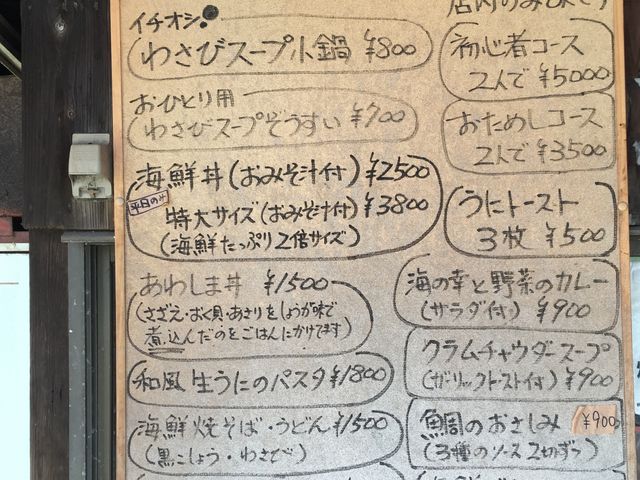 イチオシ!
わさびスープ小鍋 ¥800
おひとり用
わさびスープぞうすい ¥700
海鮮丼(おみそ汁付) ¥2500
平日のみ
特大サイズ(おみそ汁付) ¥3800
(海鮮たっぷり2倍サイズ)
あわしま丼 ¥1500
(さざえ・おく貝・あさりをしょうが味で
煮込んだのをごはんにかけてます)
和風 生うにのパスタ ¥1800
海鮮焼そば・うどん ¥1500
(黒こしょう・わさび)
店内のみ
初心者コース
2人で ¥5000
おためしコース
2人で ¥3500
うにトースト
3枚 ¥500
海の幸と野菜のカレー
(サラダ付) ¥900
クラムチャウダースープ
(ガーリックトースト付) ¥900
鯛のおさしみ ¥900
(3種のソース 2切ずつ)